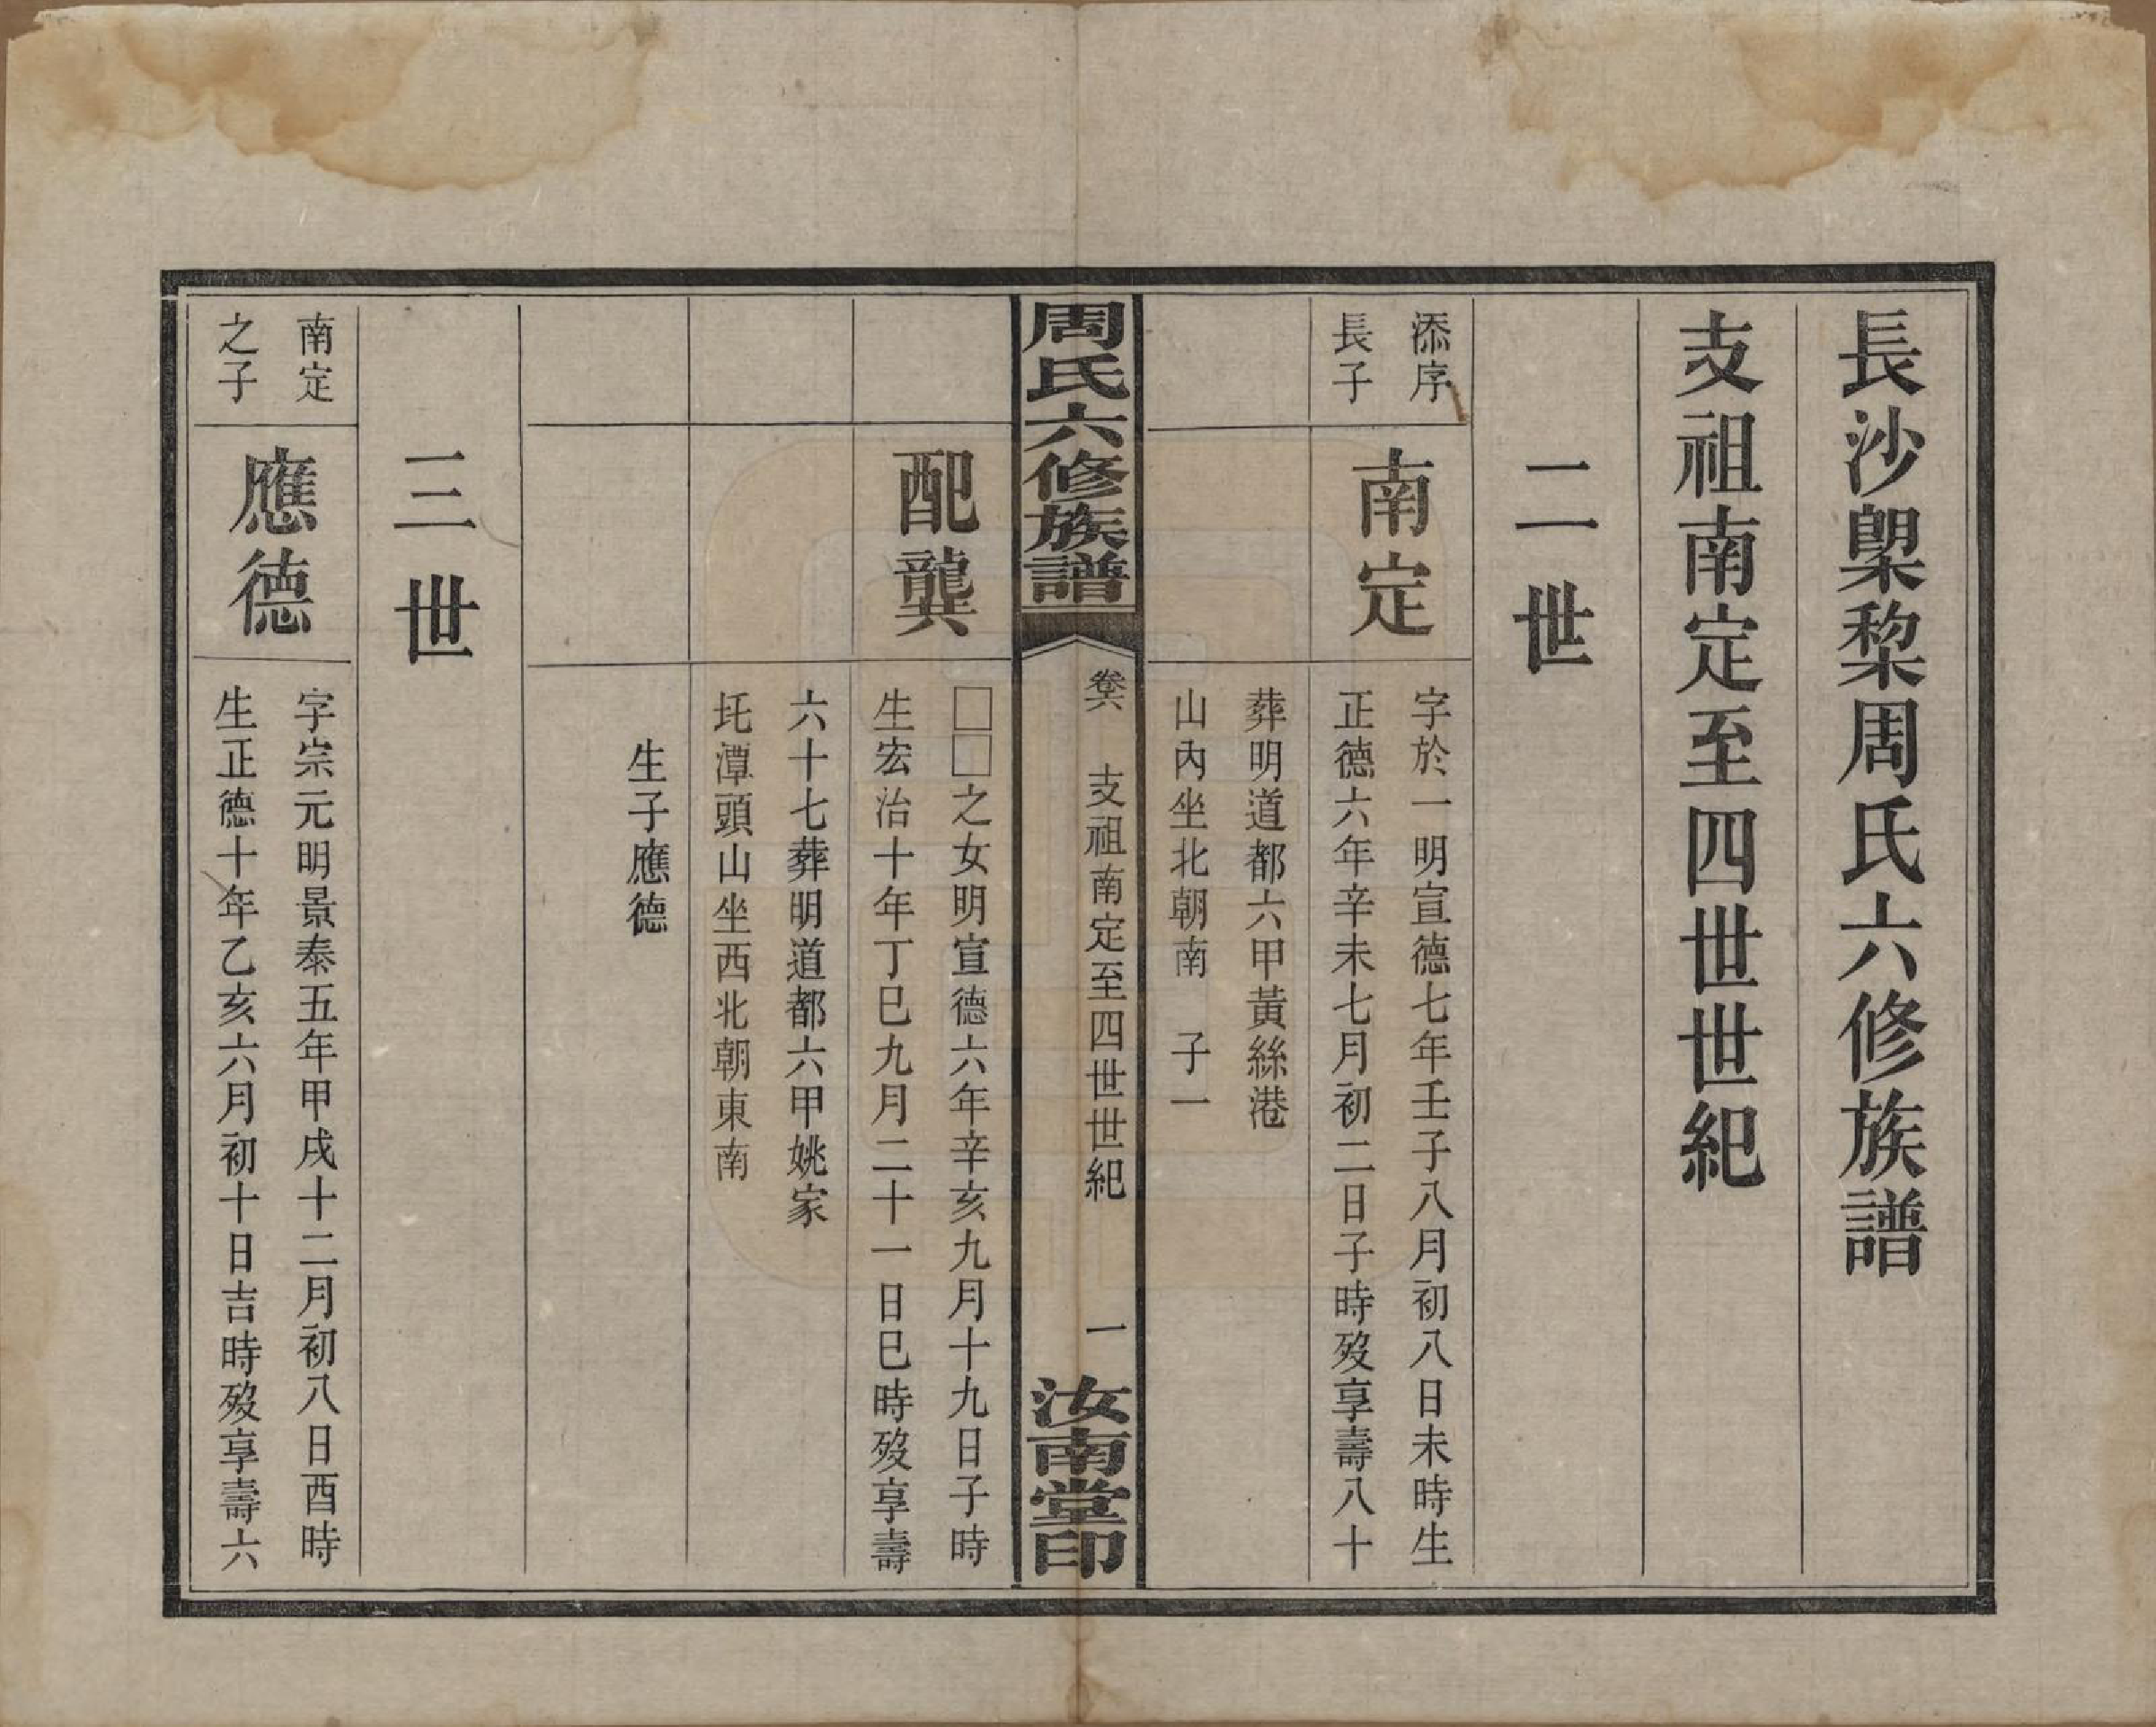 長沙㮚棃周氏六修族譜
支祖南定至四世世紀
二世
添序
長子
南定
字於一明宣德七年壬子八月初八日未時生
正德六年辛未七月初二日子時歿享壽八十
葬明道都六甲黃絲港
山內坐北朝南　子一
周氏六修族譜
卷六　支祖南定至四世世紀　一
汝南堂印
配龔
□□之女明宣德六年辛亥九月十九日子時
生宏治十年丁巳九月二十一日巳時歿享壽
六十七葬明道都六甲姚家
圫潭頭山坐西北朝東南
生子應德
三世
南定
之子
應德
字宗元明景泰五年甲戌十二月初八日酉時
生正德十年乙亥六月初十日吉時歿享壽六